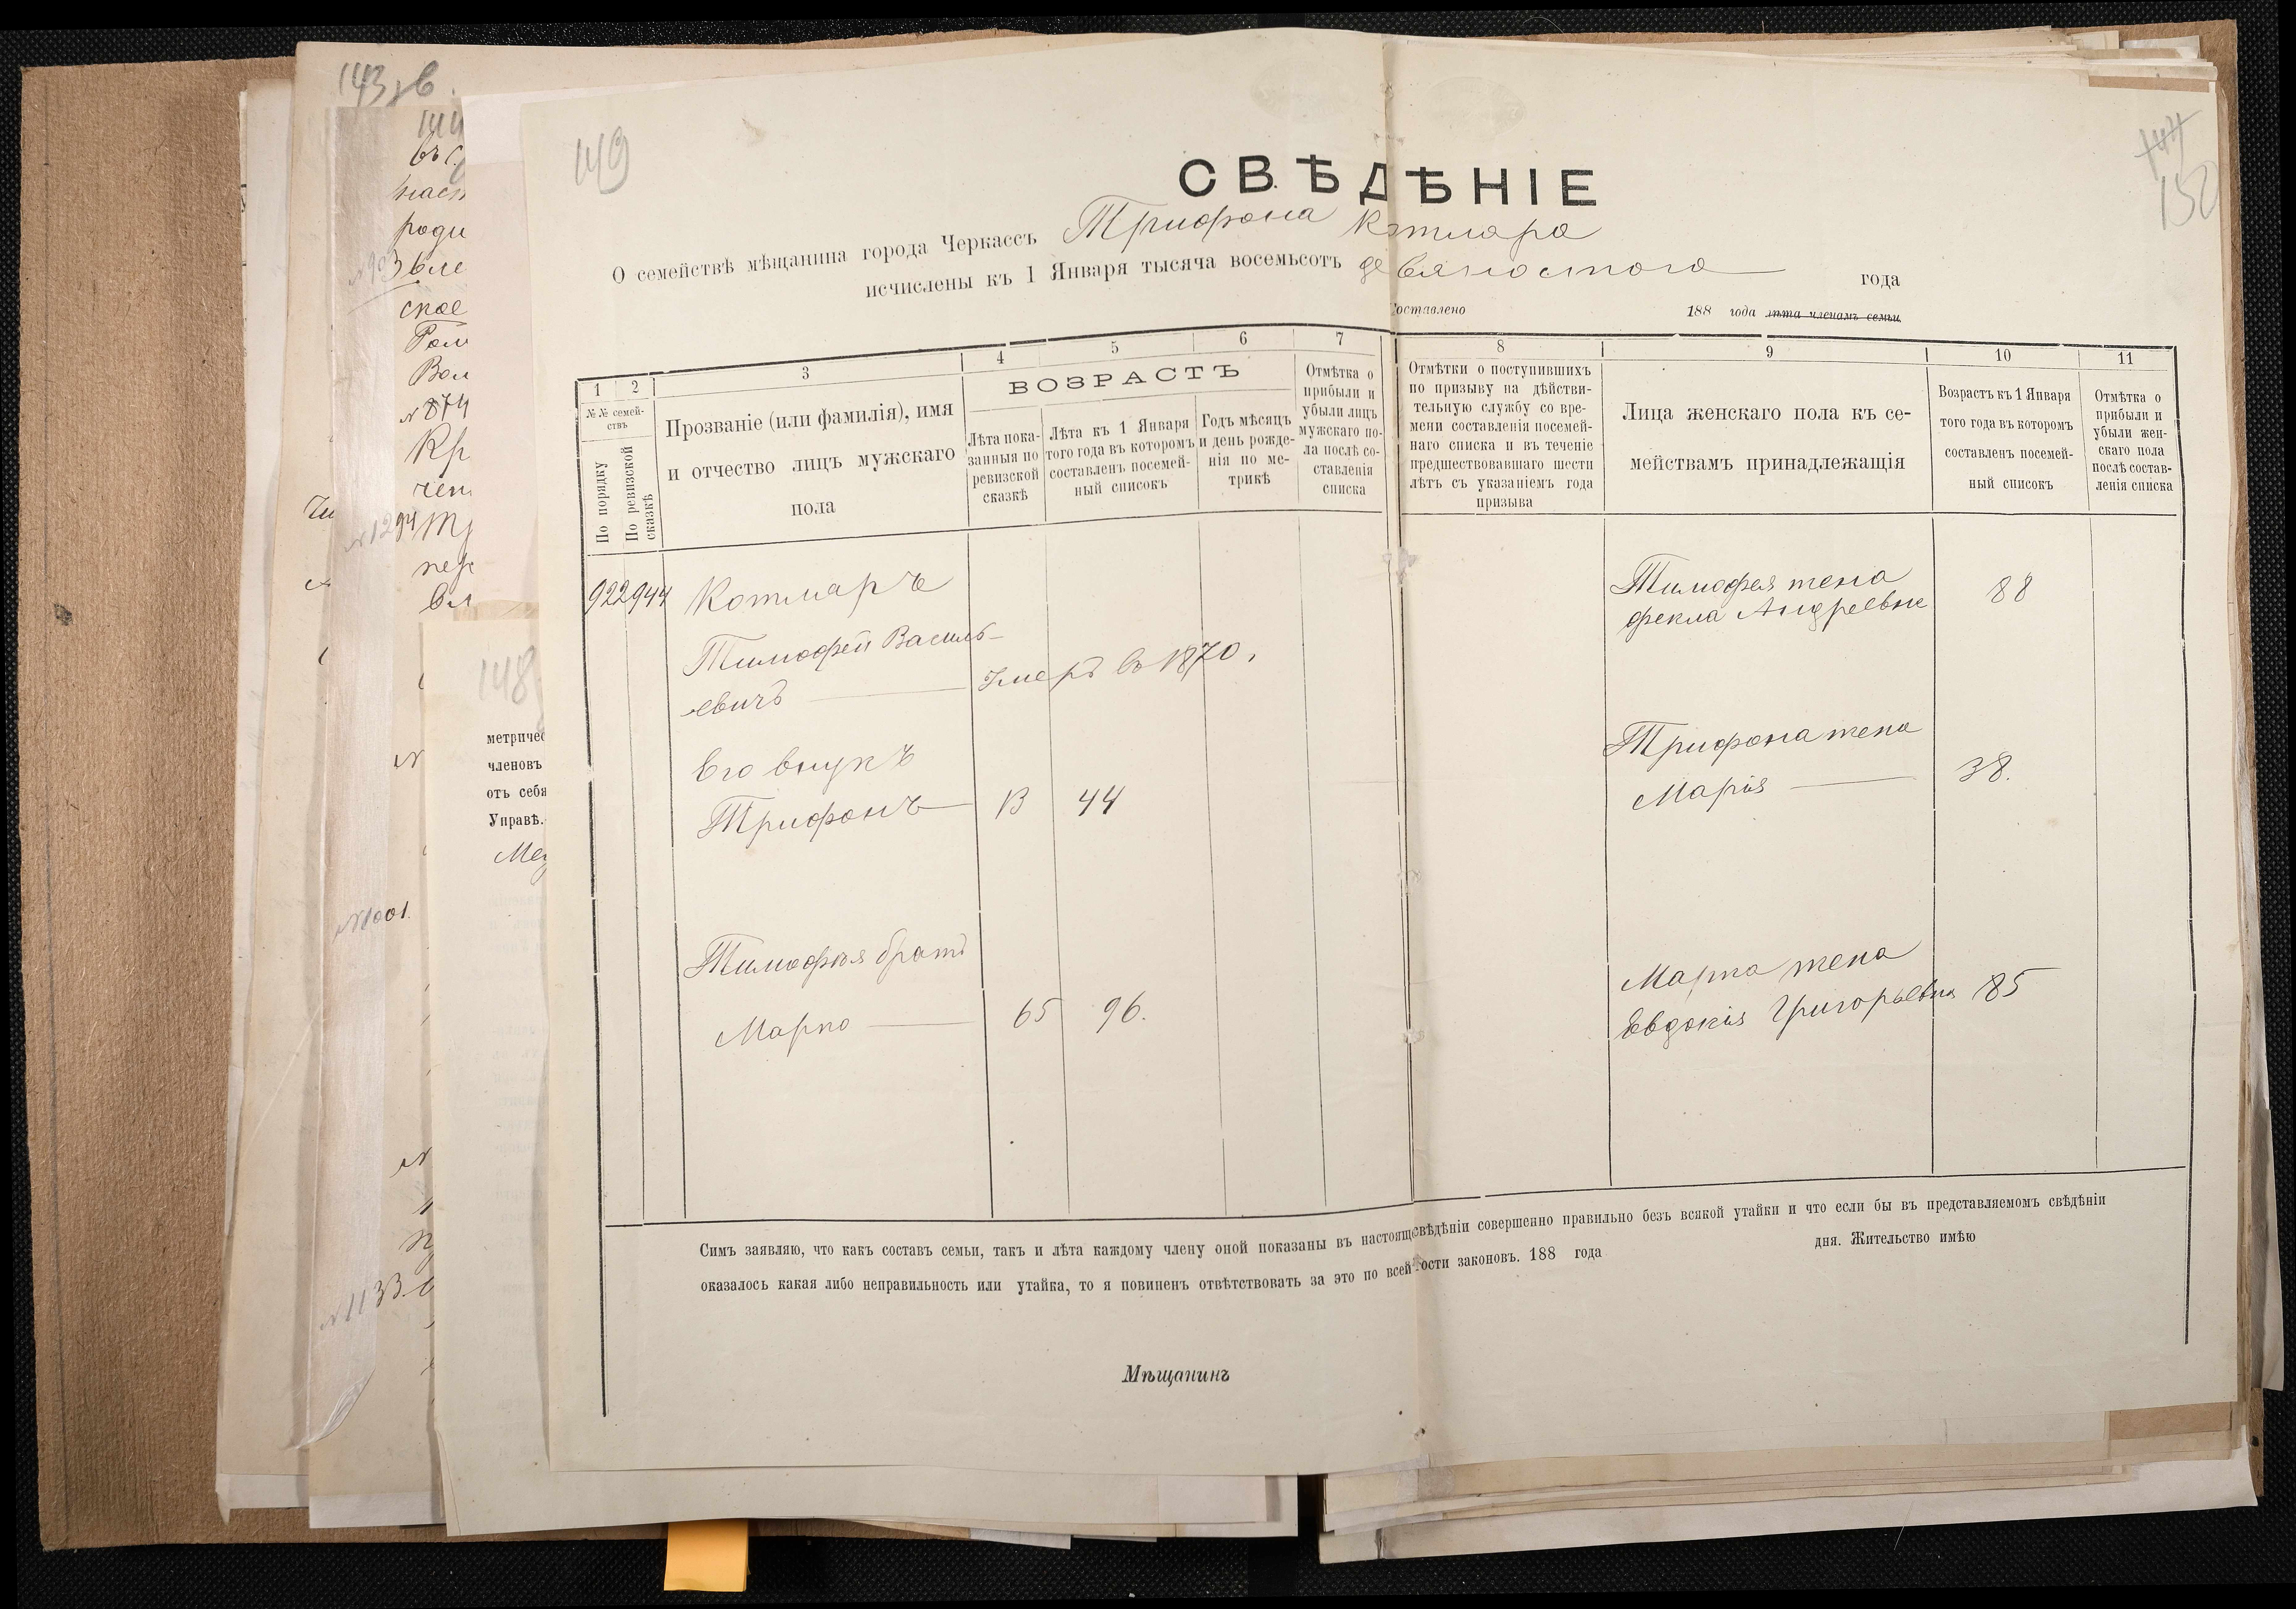 143 зв.
144
149
144
150
СВѢДѢНІЕ
О семействѣ мѣщанина города Черкассъ Трифона Котмара
исчислены къ 1 Января тысяча восемьсотъ девяностого года
Составлено 188 года лѣта членамъ семьи
1 2 3 4 5 6 7 8 9 10 11
№№ семействъ
По порядку
По ревизской сказкѣ
Прозваніе (или фамилія), имя
и отчество лицъ мужскаго
пола
ВОЗРАСТЪ
Лѣта пока-
занныя по
ревизской
сказкѣ
Лѣта къ 1 Января
того года въ которомъ
составленъ посемей-
ный списокъ
Годъ мѣсяцъ
и день рожде-
нія по ме-
трикѣ
Отмѣтка о
прибыли и
убыли лицъ
мужскаго по-
ла послѣ со-
ставленія
списка
Отмѣтки о поступившихъ
по призыву на дѣйстви-
тельную службу со вре-
мени составленія посемей-
наго списка и въ теченіе
предшествовавшаго шести
лѣтъ съ указаніемъ года
призыва
Лица женскаго пола къ се-
мействамъ принадлежащія
Возрастъ къ 1 Января
того года въ которомъ
составленъ посемей-
ный списокъ
Отмѣтка о
прибыли и
убыли жен-
скаго пола
послѣ состав-
ленія списка
922 944 Котмаръ
Тимофей Василь-
евичъ Умеръ въ 1870.
Его внукъ
Трифонъ 13 44
Тимофея братъ
Марко 65 96.
Тимофея жена
Фекла Андреевна 88
Трифона жена
Марія 38.
Марка жена
Евдокія Григорьевна 85
Симъ заявляю, что какъ составъ семьи, такъ и лѣта каждому члену оной показаны въ настояще свѣдѣніи совершенно правильно безъ всякой утайки и что если бы въ представляемомъ свѣдѣніи
оказалось какая либо неправильность или утайка, то я повиненъ отвѣтствовать за это по всей ости законовъ. 188 года дня. Жительство имѣю
Мѣщанинъ
№ 903
№ 874
№ 1294
№ 1001.
№ 1133.
148
метричес
членовъ
отъ себя
Управѣ.